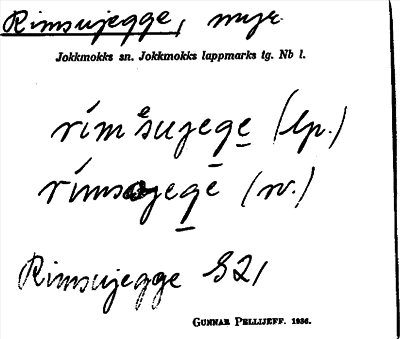 Rimsujegge, myr.
Jokkmokks sn. Jokkmokks lappmarks tg. Nb l.
rímᵉsujege (lp.)
rímsojege (sv.)
Rimsujegge S21
GUNNAR PELLIJEFF. 1936.